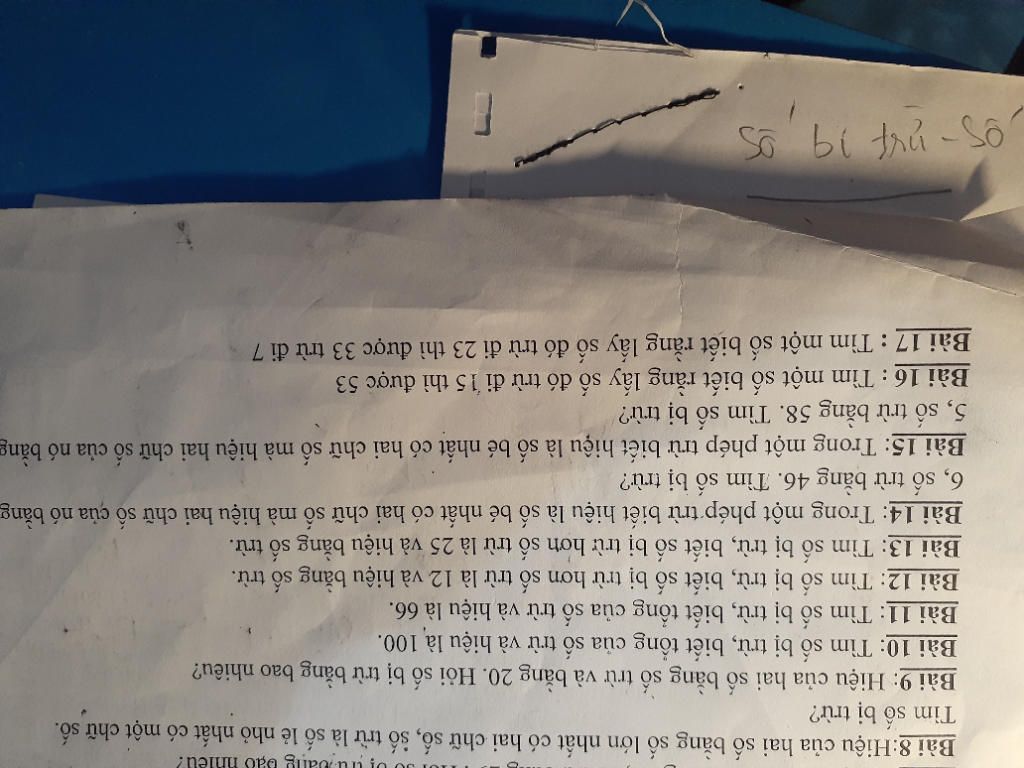 Hỏi số bị trừ bằng bao nhiêu?
Bài 8:Hiệu của hai số bằng số lớn nhất có hai chữ số, số trừ là số lẻ nhỏ nhất có một chữ số.
Tìm số bị trừ?
Bài 9: Hiệu của hai số bằng số trừ và bằng 20. Hỏi số bị trừ bằng bao nhiêu?
Bài 10: Tìm số bị trừ, biết tổng của số trừ và hiệu là 100.
Bài 11: Tìm số bị trừ, biết tổng của số trừ và hiệu là 66.
Bài 12: Tìm số bị trừ, biết số bị trừ hơn số trừ là 12 và hiệu bằng số trừ.
Bài 13: Tìm số bị trừ, biết số bị trừ hơn số trừ là 25 và hiệu bằng số trừ.
Bài 14: Trong một phép trừ biết hiệu là số bé nhất có hai chữ số mà hiệu hai chữ số của nó bằng
6, số trừ bằng 46. Tìm số bị trừ?
Bài 15: Trong một phép trừ biết hiệu là số bé nhất có hai chữ số mà hiệu hai chữ số của nó bằng
5, số trừ bằng 58. Tìm số bị trừ?
Bài 16 : Tìm một số biết rằng lấy số đó trừ đi 15 thì được 53
Bài 17 : Tìm một số biết rằng lấy số đó trừ đi 23 thì được 33 trừ đi 7